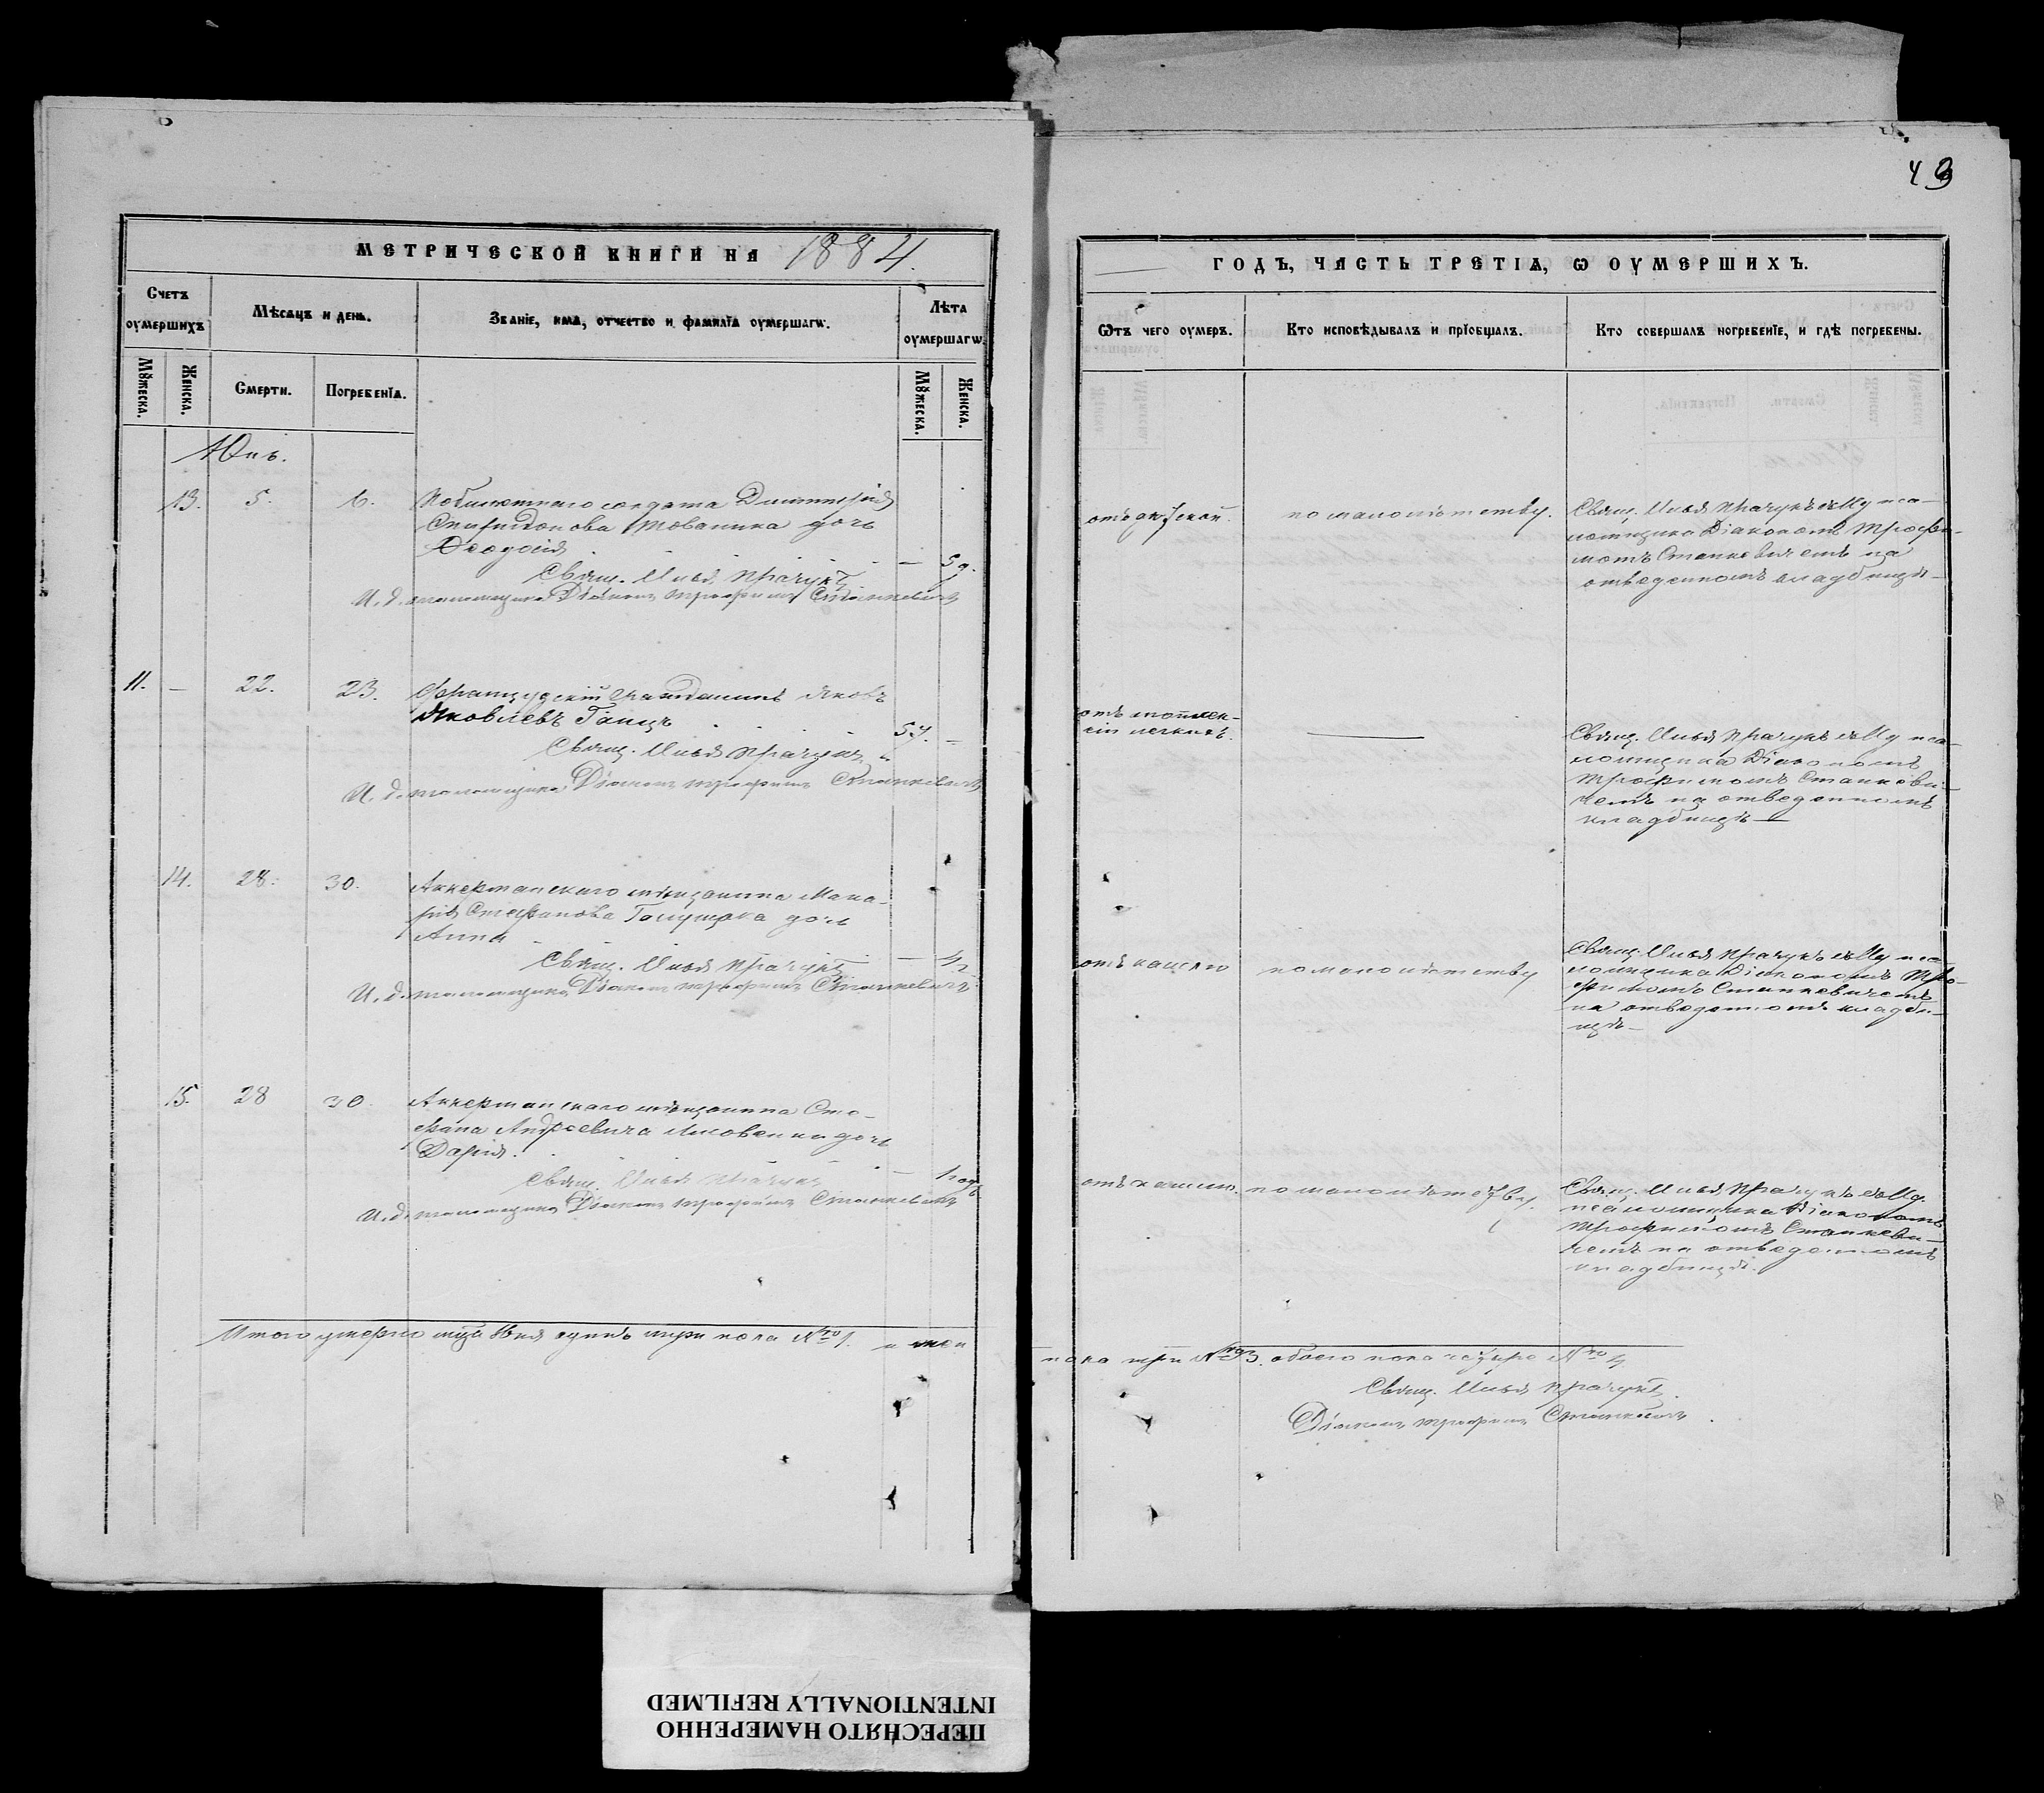 43
МЕТРИЧЕСКОЙ КНИГИ НА 1884.
Счетъ оумершихъ
Мѣсяцъ и день.
Званіе, имя, отчество и фамилія оумершагѡ.
Лѣта оумершагѡ.
Мꙋжеска.
Женска.
Смерти.
Погребенія.
Мꙋжеска.
Женска.
Юнь.
13. 5. 6.
солдата Димитрія
Спиридонова дочь
Ѳеодосія — 5 д.
Свящ. Илья Прачукъ
И. д. псаломщика Діаконъ Трофимъ Станкевичъ
11. — 22. 23.
Французскій гражданинъ Яковъ
Яковлевъ Ганцъ 57. —
Свящ. Илья Прачукъ
И. д. псаломщика Діаконъ Трофимъ Станкевичъ
14. 28. 30.
Аккерманскаго мѣщанина Мака-
рія Стефанова дочь
Анна
Свящ. Илья Прачукъ —
И. д. псаломщика Діаконъ Трофимъ Станкевичъ
15. 28 30.
Аккерманскаго мѣщанина Сте-
фана Андреевича дочь
Дарія.
Свящ. Илья Прачукъ — 1 годъ
И. д. псаломщика Діаконъ Трофимъ Станкевичъ
Итого умерло Юня одинъ пола № 1. и жен
ГОДЪ, ЧАСТЬ ТРЕТІЯ, Ѡ ОУМЕРШИХЪ.
Ѿтъ чего оумеръ.
Кто исповѣдывалъ и пріобщалъ.
Кто совершалъ погребеніе, и гдѣ погребены.
по малолѣтству.
Свящ. Илья Прачукъ съ Иду пса-
ломщика Діакономъ Трофи-
момъ Станкевичемъ на
отведенномъ кладбищѣ—
легкихъ.
———
Свящ. Илья Прачукъ съ Иду пса-
ломщика Діакономъ
Трофимомъ Станкеви-
чемъ на отведенномъ
кладбищѣ —
отъ кашлю
по малолѣтству
Свящ. Илья Прачукъ съ Иду пса-
ломщика Діакономъ Тро-
фимомъ Станкевичемъ
на отведенномъ кладби-
щѣ—
отъ кашлю.
по малолѣтству
Свящ. Илья Прачукъ съ Иду.
псаломщика Діакономъ
Трофимомъ Станкеви-
чемъ на отведенномъ
кладбищѣ.
пола три № 3. обоего пола четыре № 4
Свящ. Илья Прачукъ
Діаконъ Трофимъ Станкевичъ
ПЕРЕСНЯТО НАМЕРЕННО
INTENTIONALLY REFILMED